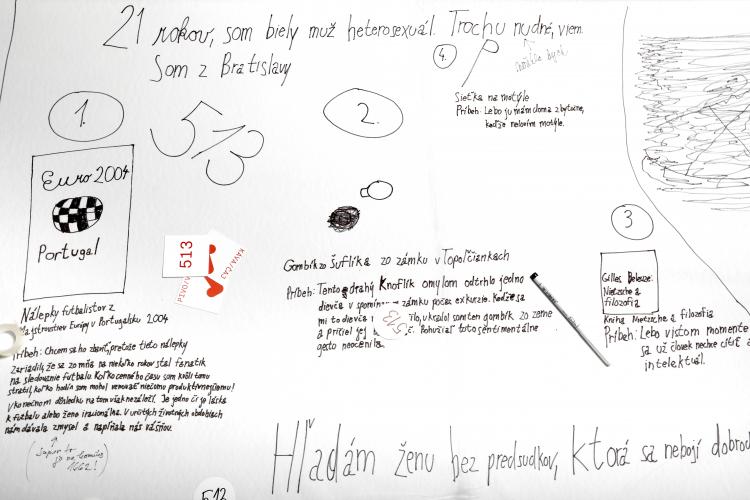 21 rokov, som biely muž heterosexuál. Trochu nudné, viem.
Som z Bratislavy
1.
Euro 2004
Portugal
Nálepky futbalistov z
Majstrovstiev Európy v Portugalsku 2004
Príbeh: Chcem sa ho zbaviť, pretože tieto nálepky
zariadili, že sa zo mňa na niekoľko rokov stal fanatik
na sledovanie futbalu. Koľko cenného času som kvôli tomu
stratil, koľko hodín som mohol venovať niečomu produktívnejšiemu!
V konečnom dôsledku na tom však nezáleží. Je jedno či je láska
k futbalu alebo ženo iracionálna. V určitých životných obdobiach
nám dávala zmysel a napĺňala nás vášňou.
513
513
PIVO/V
KÁVA/ČAJ
2.
Gombík zo Šuflíka zo zámku v Topoľčiankach
Príbeh: Tento drahý Knoflík omylom odtrhlo jedno
dievča v zámku počas exkurzie. Keďže sa
mi to dievča ukradol som ten gombík zo zeme
a prišiel jej Bohužiaľ toto sentimentálne
gesto neocenila.
513
4.
Sieťka na motýle
Príbeh: Lebo ju mám doma zbytočne,
keďže nelovím motýle.
3
Gilles Deleuze:
Nietzsche a
filozofia
Kniha Nietzsche a filozofia
Príbeh: Lebo v istom momente
sa už človek nechce cítiť a
intelektuál.
Hľadám ženu bez predsudkov, ktorá sa nebojí dobrod
512